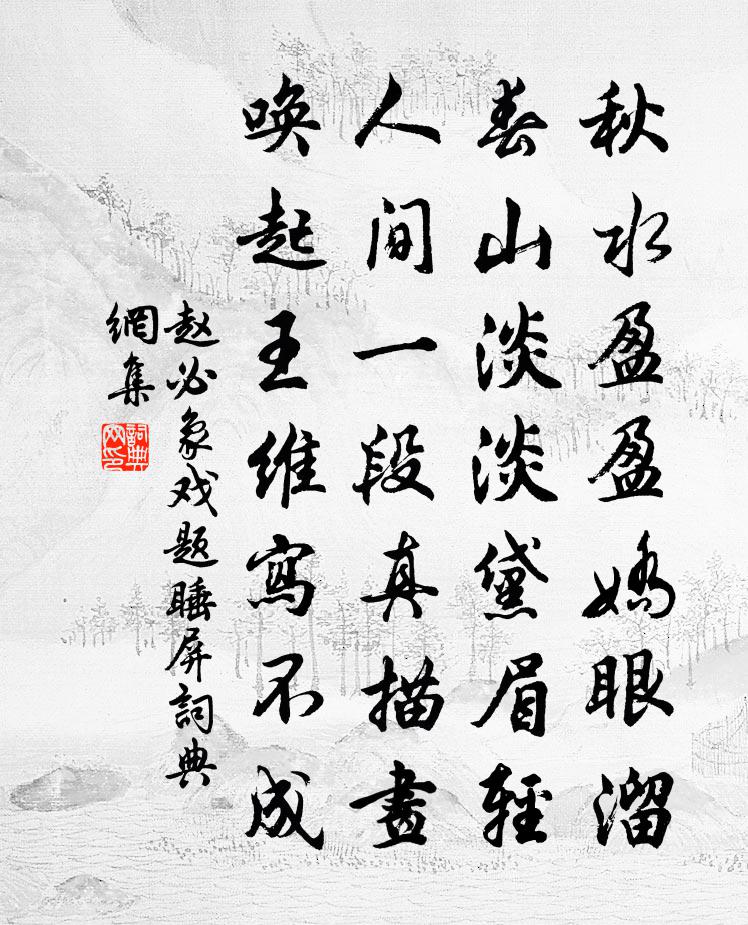 秋水盈盈嬌眼溜
春山淡淡黛眉輕
人间一段真描畫
喚起王维寫不成
赵必象戏题睡屏詞典
網集
詞典
网印